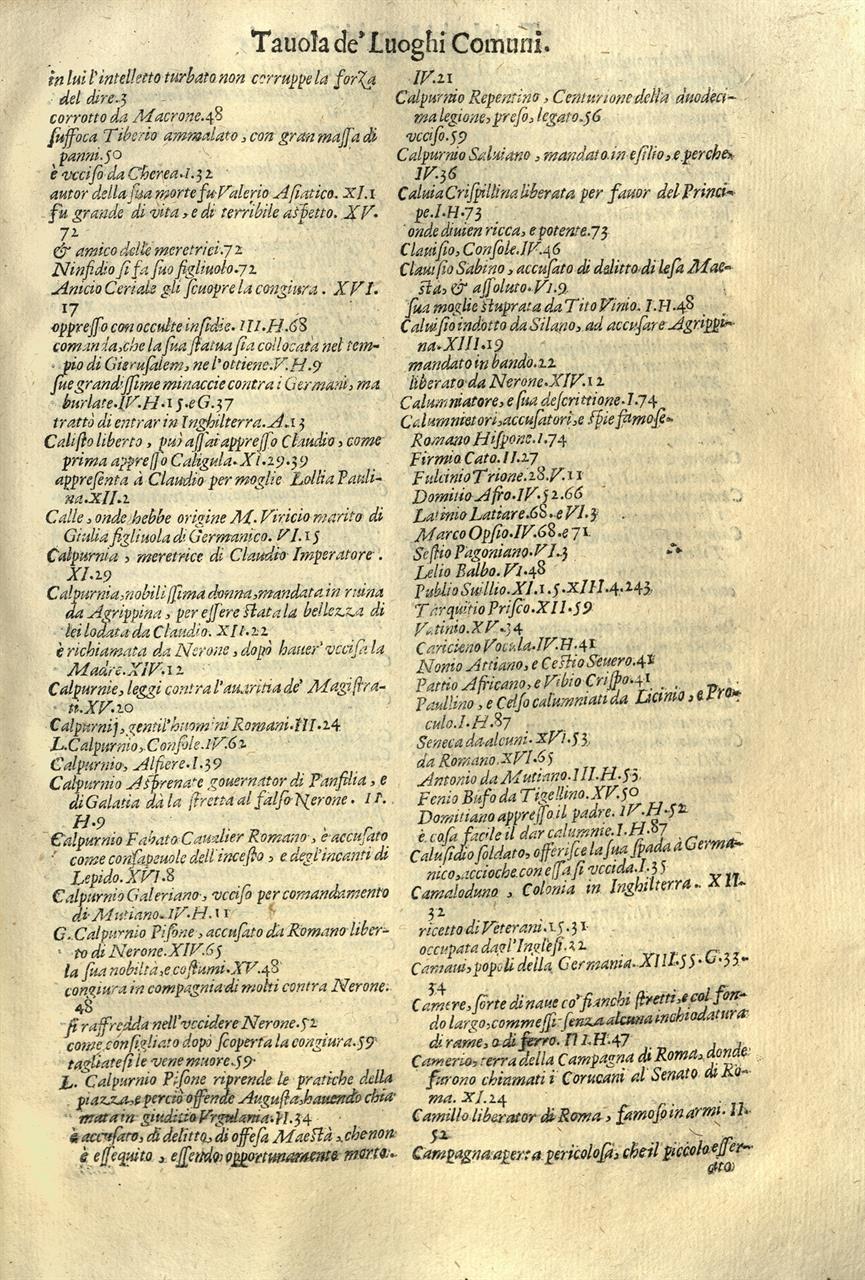 Tauola de' Luoghi Comuni.
in lui l'intelletto turbato non corruppe la forza
del dire.3
corrotto da Macrone.48
suffoca Tiberio ammalato, con gran massa di
panni.50
è vcciso da Cherea.I.32
autor della sua morte fu Valerio Asiatico. XI.1
fu grande di vita, e di terribile aspetto. XV.
72
& amico delle meretrici.72
Ninfidio si fa suo figliuolo.72
Anicio Ceriale gli scuopre la congiura. XVI.
17
oppresso con occulte insidie. III.H.68
comanda, che la sua statua sia collocata nel tem-
pio di Gierusalem, ne l'ottiene.V.H.9
sue grandissime minaccie contra i Germani, ma
burlate.IV.H.15.e G.37
trattò di entrar in Inghilterra. A.13
Calisto liberto, può assai appresso Claudio, come
prima appresso Caligula.XI.29.39
appresenta à Claudio per moglie Lollia Pauli-
na.XII.2
Calle, onde hebbe origine M. Viricio marito di
Giulia figliuola di Germanico. VI.15
Calpurnia, meretrice di Claudio Imperatore.
XI.29
Calpurnia, nobilissima donna, mandata in ruina
da Agrippina, per essere stata la bellezza di
lei lodata da Claudio. XII.22
è richiamata da Nerone, dopò hauer' vccisa la
Madre.XIV.12
Calpurnie, leggi contra l'auaritia de' Magistra-
ti.XV.20
Calpurnij, gentil'huomini Romani.III.24
L.Calpurnio, Console.IV.62
Calpurnio, Alfiere.I.39
Calpurnio Asprenate gouernator di Panfilia, e
di Galatia dà la stretta al falso Nerone. II.
H.9
Calpurnio Fabato Caualier Romano, è accusato
come consapeuole dell'incesto, e degl'incanti di
Lepido. XVI.8
Calpurnio Galeriano, vcciso per comandamento
di Mutiano. IV.H.11
G. Calpurnio Pisone, accusato da Romano liber-
to di Nerone.XIV.65
la sua nobiltà, e costumi.XV.48
congiura in compagnia di molti contra Nerone.
48
si raffredda nell'vccidere Nerone.52
come consigliato dopò scoperta la congiura.59
tagliatesi le vene muore.59
L. Calpurnio Pisone riprende le pratiche della
piazza, e perciò offende Augusta, hauendo chia
mata in giuditio Vrgulania.II.34
è accusato, di delitto, di offesa Maestà, che non
è essequito, essendo opportunamente morto.
IV.21
Calpurnio Repentino, Centurione della duodeci-
ma legione, preso, legato.56
vcciso.59
Calpurnio Saluiano, mandato in esilio, e perche.
IV.36
Caluia Crispillina liberata per fauor del Princi-
pe.I.H.73
onde diuien ricca, e potente.73
Clauisio, Console.IV.46
Clauisio Sabino, accusato di delitto di lesa Mae-
stà, & assoluto. VI.9
sua moglie stuprata da Tito Vinio. I.H.48
Caluisio indotto da Silano, ad accusare Agrippi-
na.XIII.19
mandato in bando.22
liberato da Nerone.XIV.12
Calumniatore, e sua descrittione.I.74
Calumniatori, accusatori, e spie famose.
Romano Hispone.I.74
Firmio Cato.II.27
Fulcinio Trione.28.V.11
Domitio Afro.IV.52.66
Latinio Latiare.68.e VI.3
Marco Opsio.IV.68.e 71
Sestio Pagoniano.VI.3
Lelio Balbo.VI.48
Publio Suillio.XI.1.5.XIII.4.243
Tarquitio Prisco.XII.59
Vatinio.XV.34
Caricieno Vocula.IV.H.41
Nonio Attiano, e Cestio Seuero.41
Pattio Africano, e Vibio Crispo.41
Paullino, e Celso calumniati da Licinio, e Pro-
culo.I.H.87
Seneca da alcuni. XVI.53
da Romano.XVI.65
Antonio da Mutiano.III.H.53
Fenio Bufo da Tigellino. XV.50
Domitiano appresso il padre. IV.H.52
è cosa facile il dar calumnie.I.H.87
Calusidio soldato, offerisce la sua spada à Germa-
nico, accioche con essa si vccida.I.35
Camaloduno, Colonia in Inghilterra. XII.
32
ricetto di Veterani.15.31
occupata dagl'Inglesi.22
Camaui, popoli della Germania. XIII.55.G.33.
34
Camere, sorte di naue co' fianchi stretti, e col fon-
do largo, commessi senza alcuna inchiodatura
di rame, o di ferro. III.H.47
Camerio, terra della Campagna di Roma, donde
furono chiamati i Corucani al Senato di Ro-
ma. XI.24
Camillo liberator di Roma, famoso in armi. II.
52
Campagna aperta pericolosa, che il piccolo esser-
cito